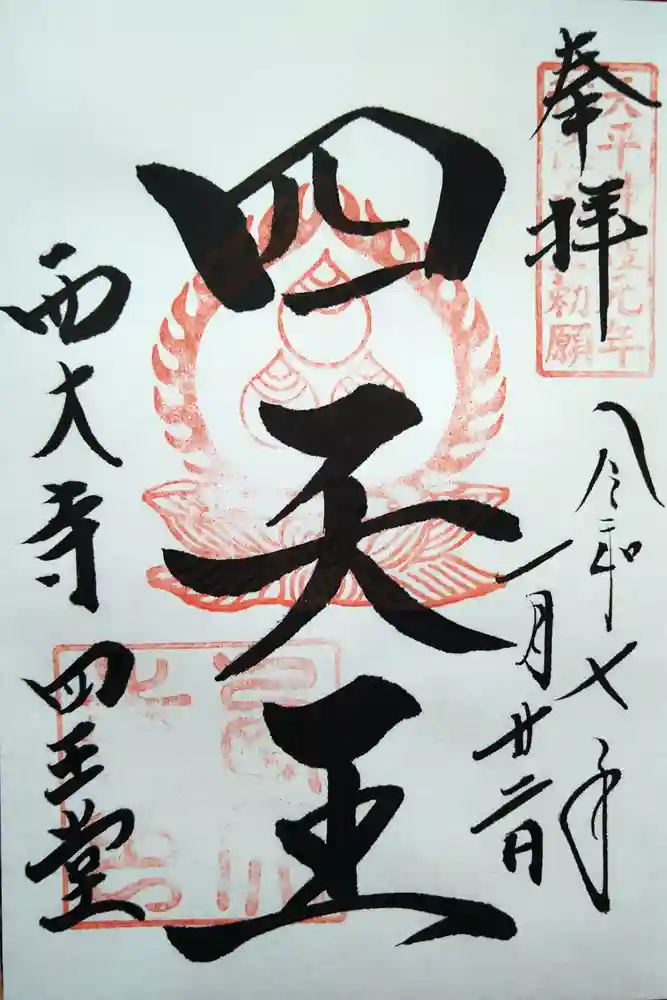 奉拝
天平神護元年
勅願
令和七年
一月廿二日
四天王
西大寺
四王堂